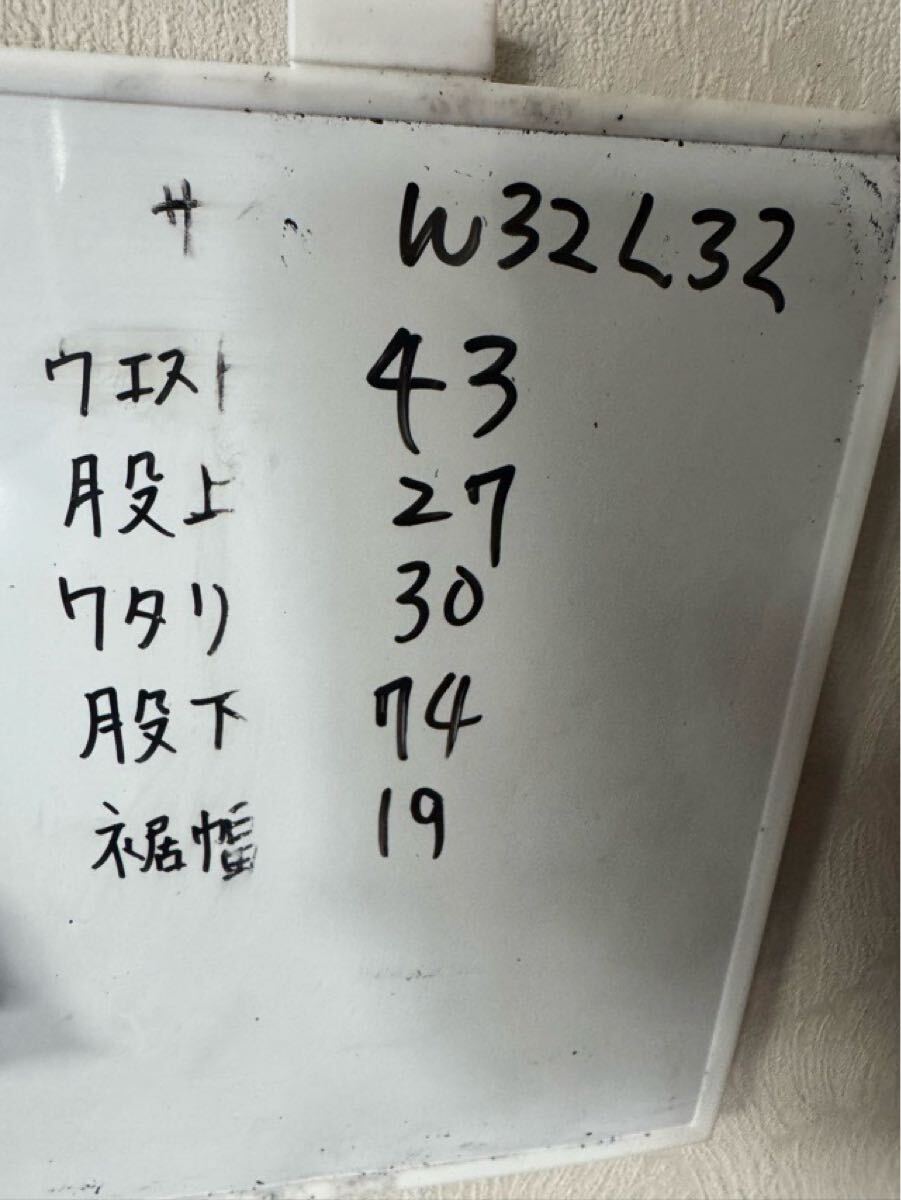 サ W32L32
ウエスト 43
股上 27
ワタリ 30
股下 74
裾幅 19